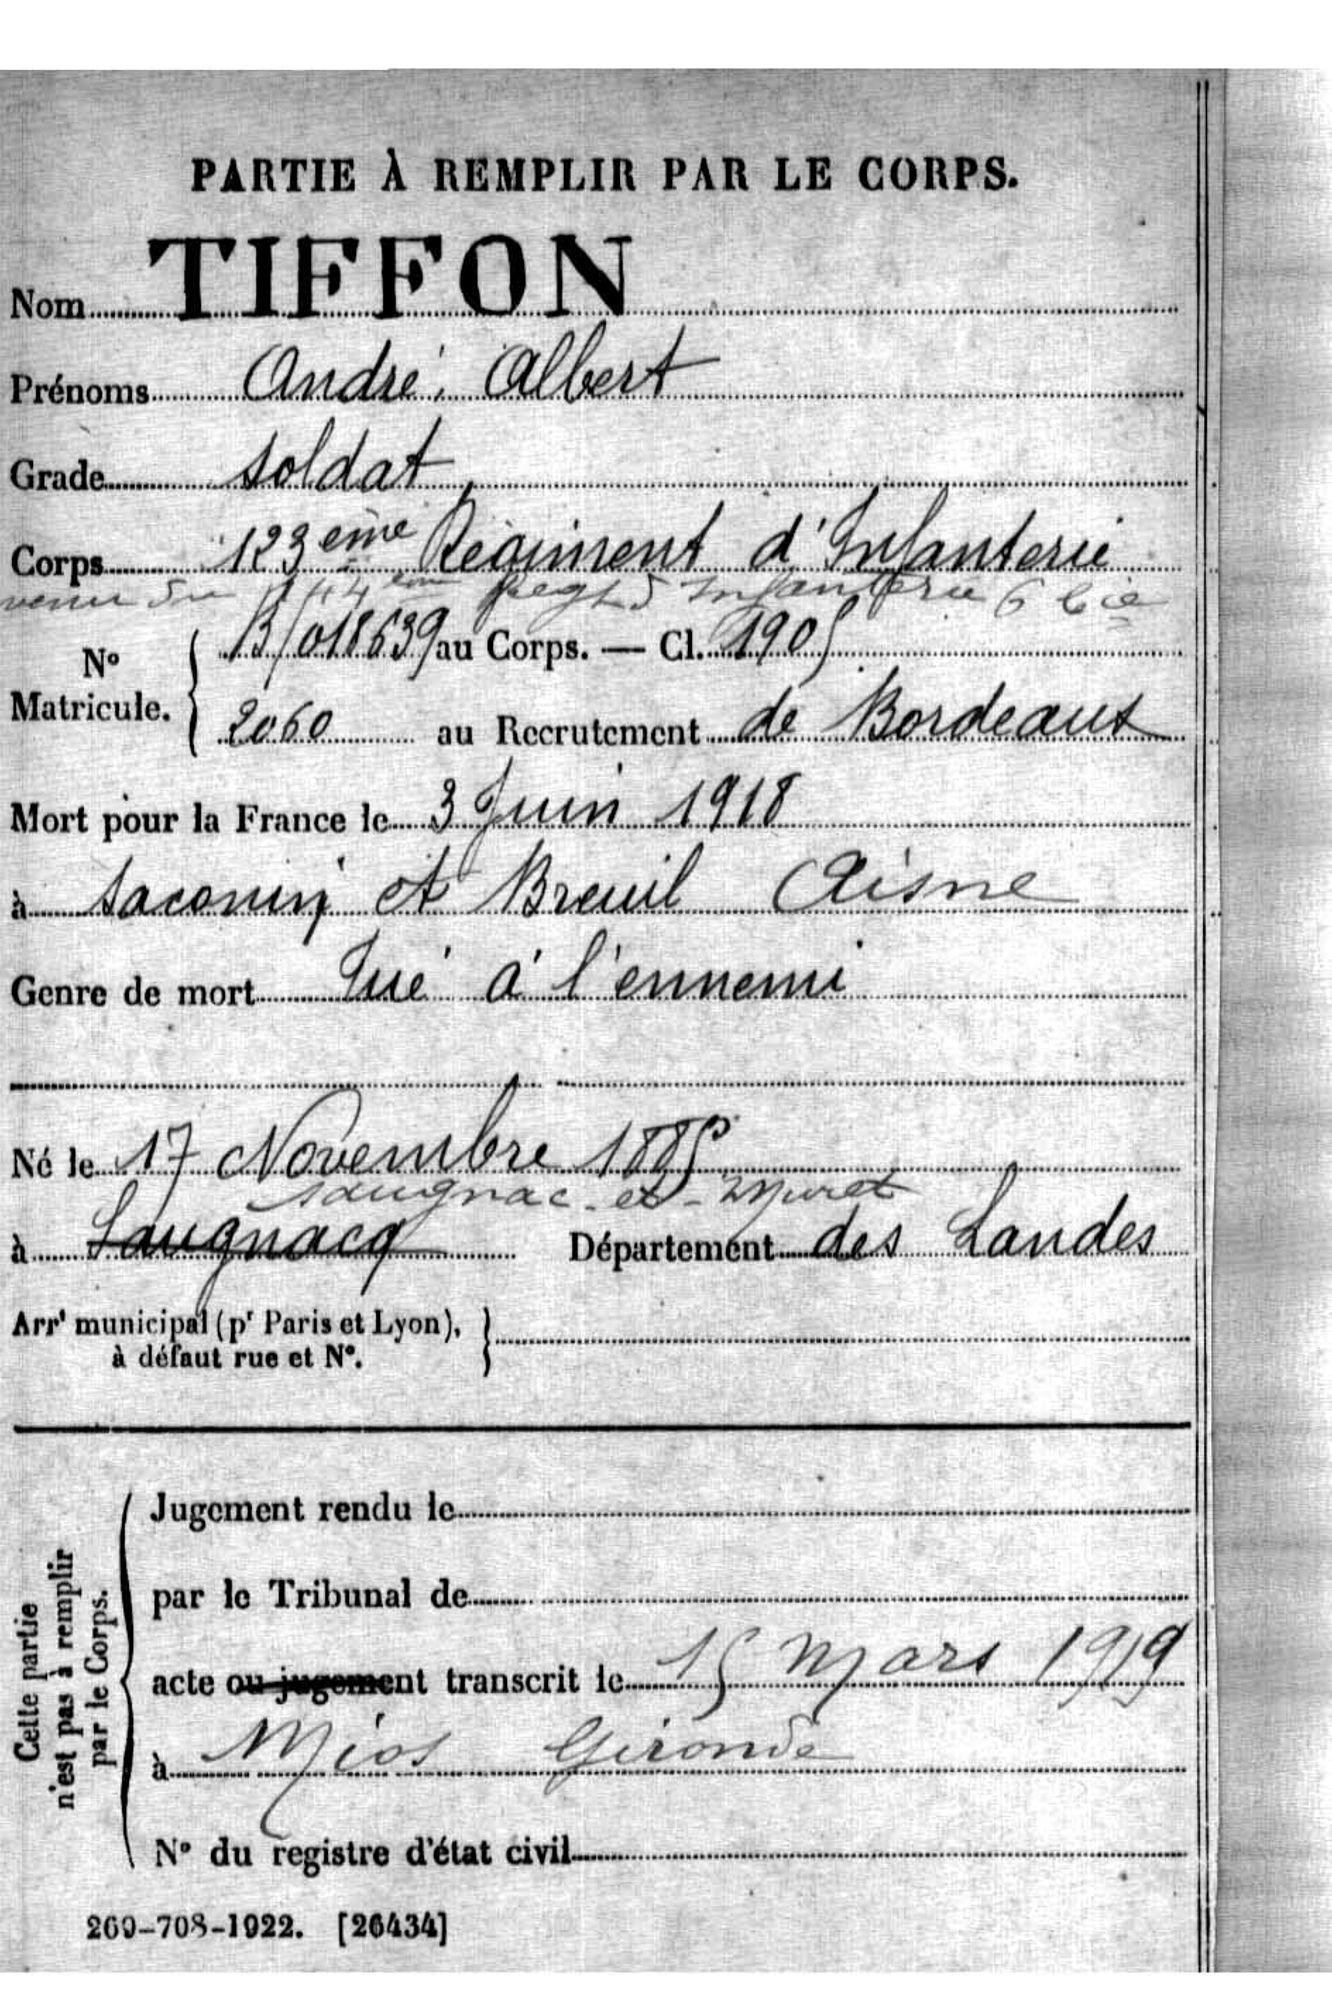 PARTIE À REMPLIR PAR LE CORPS.
Nom TIFFON
Prénoms André, Albert
Grade soldat
Corps 123 eme Régiment d'Infanterie
venu du 144 eme Regt d'Infanterie 6 Cie
N° Matricule. { B/018639 au Corps. — Cl. 1905
2060 au Recrutement de Bordeaux
Mort pour la France le 3 Juin 1918
à Saconin et Breuil Aisne
Genre de mort Tué à l'ennemi
Né le 17 Novembre 1885
Saugnac-et-Muret
à Saugnacq Département des Landes
Arrt municipal (pr Paris et Lyon),
à défaut rue et N°.
Cette partie
n'est pas à remplir
par le Corps.
Jugement rendu le
par le Tribunal de
acte ou jugement transcrit le 15 mars 1919
à Mios Gironde
N° du registre d'état civil
269-708-1922. [26434]